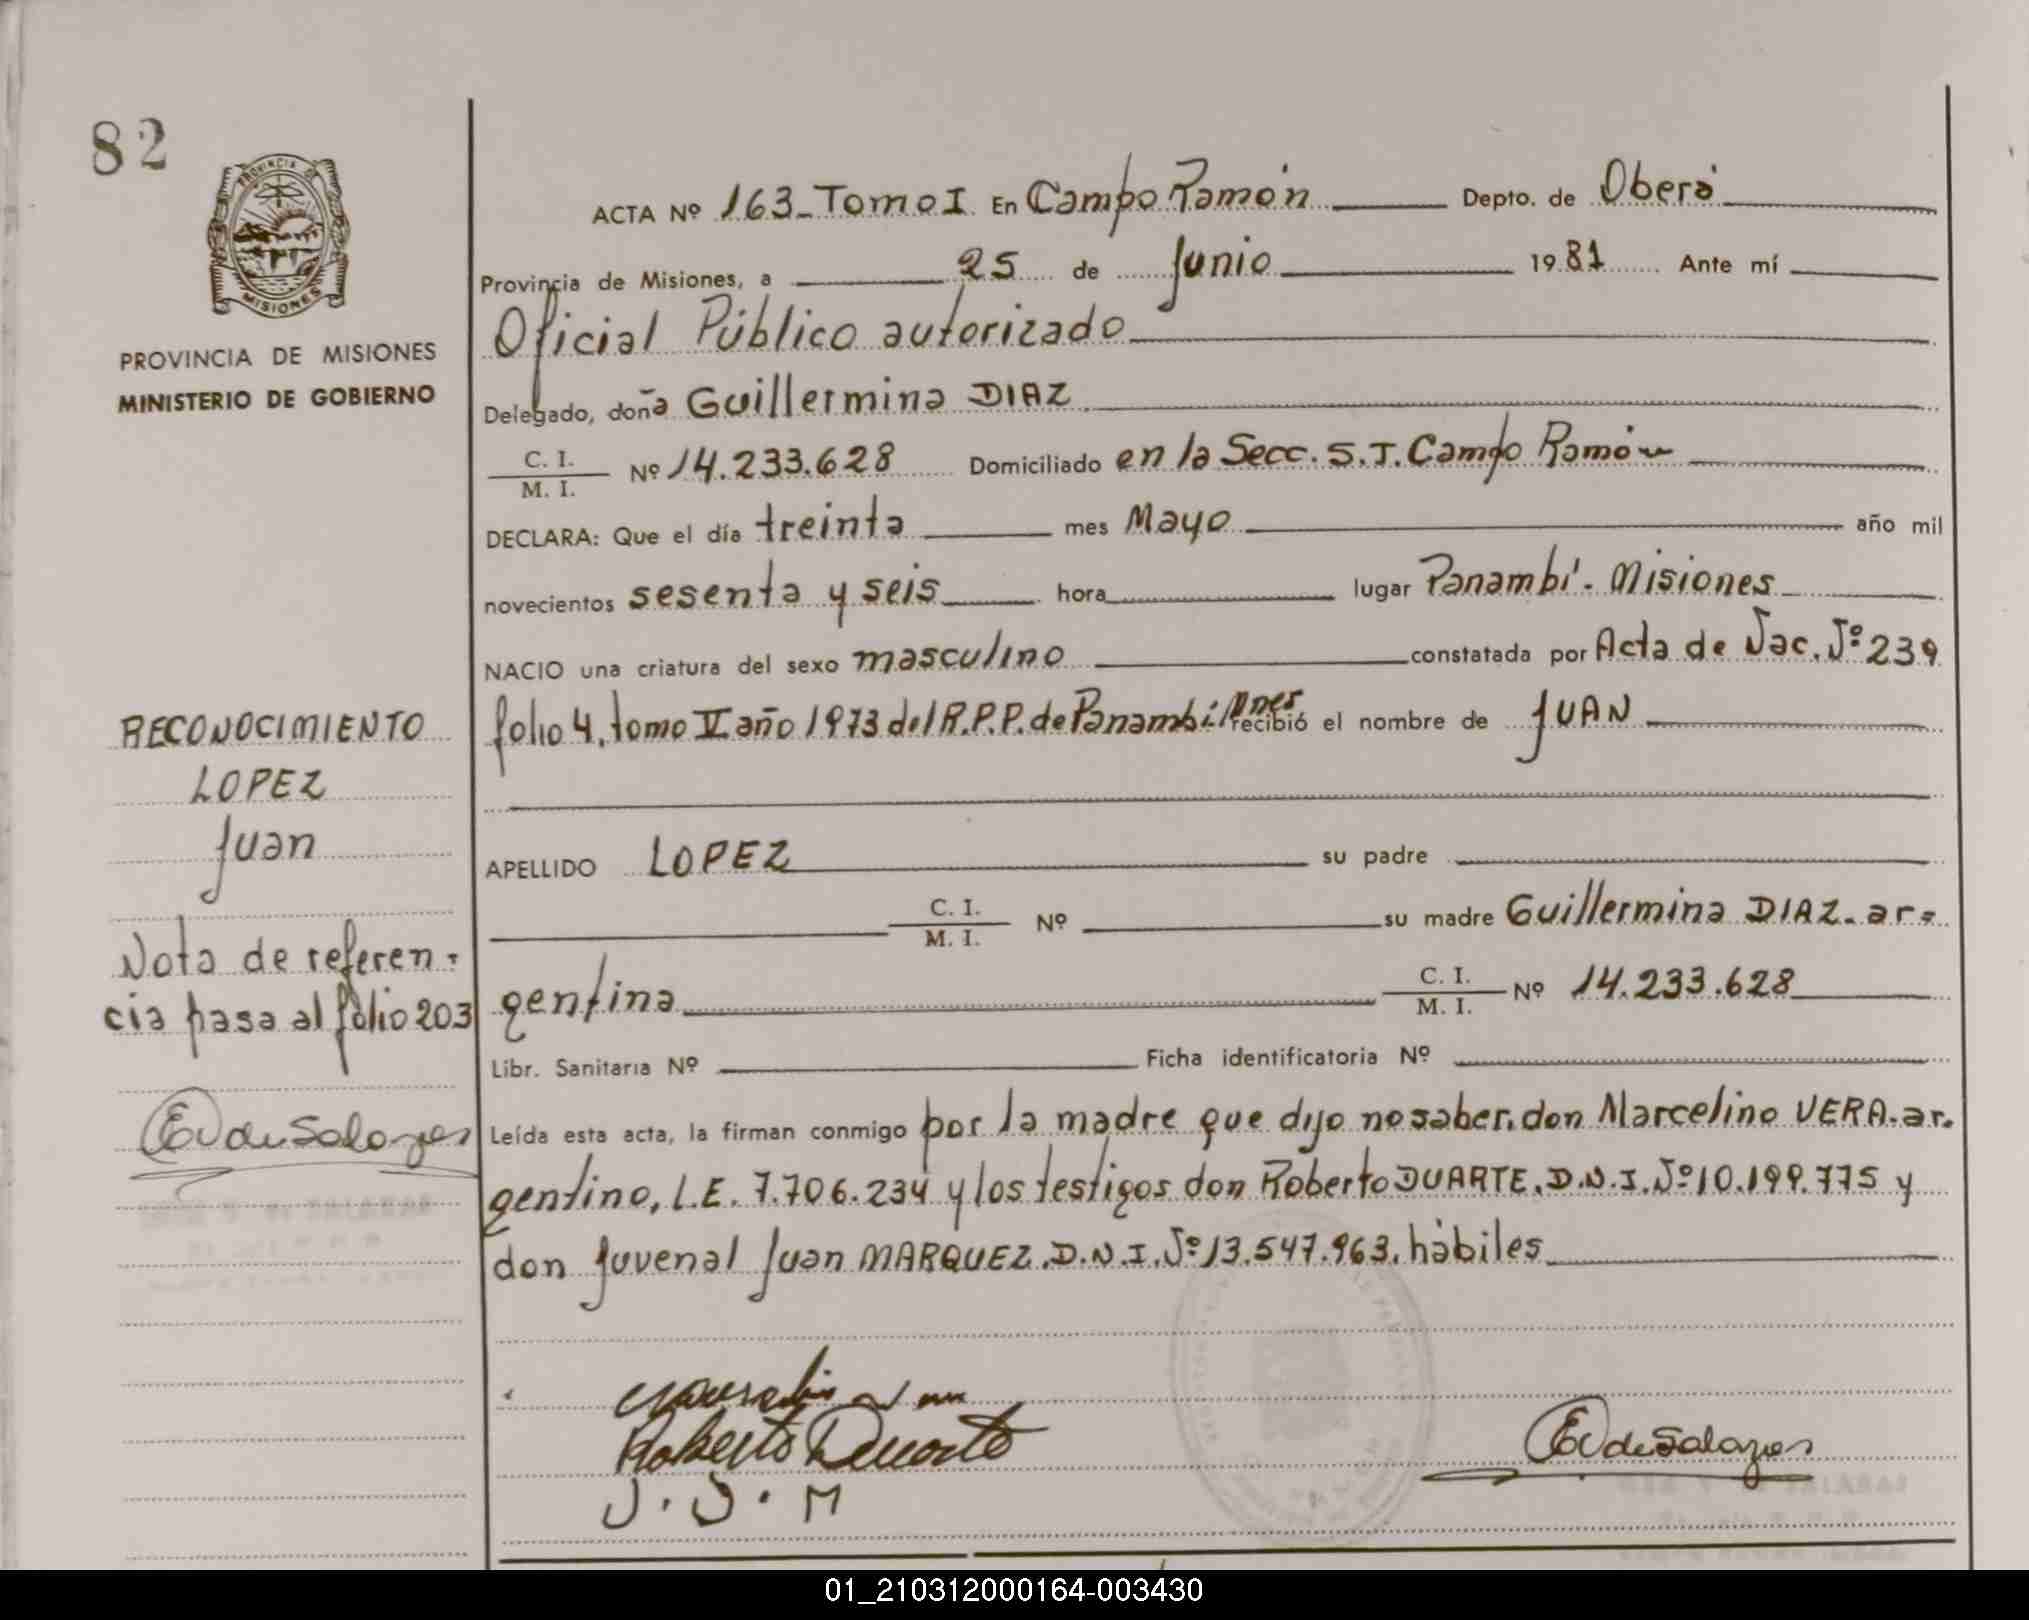 82
PROVINCIA DE MISIONES
PROVINCIA DE MISIONES
MINISTERIO DE GOBIERNO
RECONOCIMIENTO
LOPEZ
Juan
Nota de referen-
cia pasa al folio 203
EvdeSalazar
ACTA Nº 163_Tomo I En Campo Ramón Depto. de Oberá
Provincia de Misiones, a 25 de Junio 1981 Ante mí
Oficial Público autorizado
Delegado, doña Guillermina DIAZ
C. I.
M. I. Nº 14.233.628 Domiciliado en la Secc. S.J. Campo Ramón
DECLARA: Que el día treinta mes Mayo año mil
novecientos sesenta y seis hora lugar Panambí - Misiones
NACIO una criatura del sexo masculino constatada por Acta de Nac. Nº 239
folio 4, tomo V año 1973 del R.P.P. de Panambí Mnes recibió el nombre de JUAN
APELLIDO LOPEZ su padre
C. I.
M. I. Nº su madre Guillermina DIAZ - ar=
gentina C. I.
M. I. Nº 14.233.628
Libr. Sanitaria Nº Ficha identificatoria Nº
Leída esta acta, la firman conmigo por la madre que dijo no saber, don Marcelino VERA. ar.
gentino, L.E. 7.706.234 y los testigos don Roberto DUARTE, D.N.I. Nº 10.199.775 y
don Juvenal Juan MARQUEZ. D.N.I. Nº 13.547.963, hábiles
Roberto Duarte
J. J. M
EvdeSalazar
01_210312000164-003430